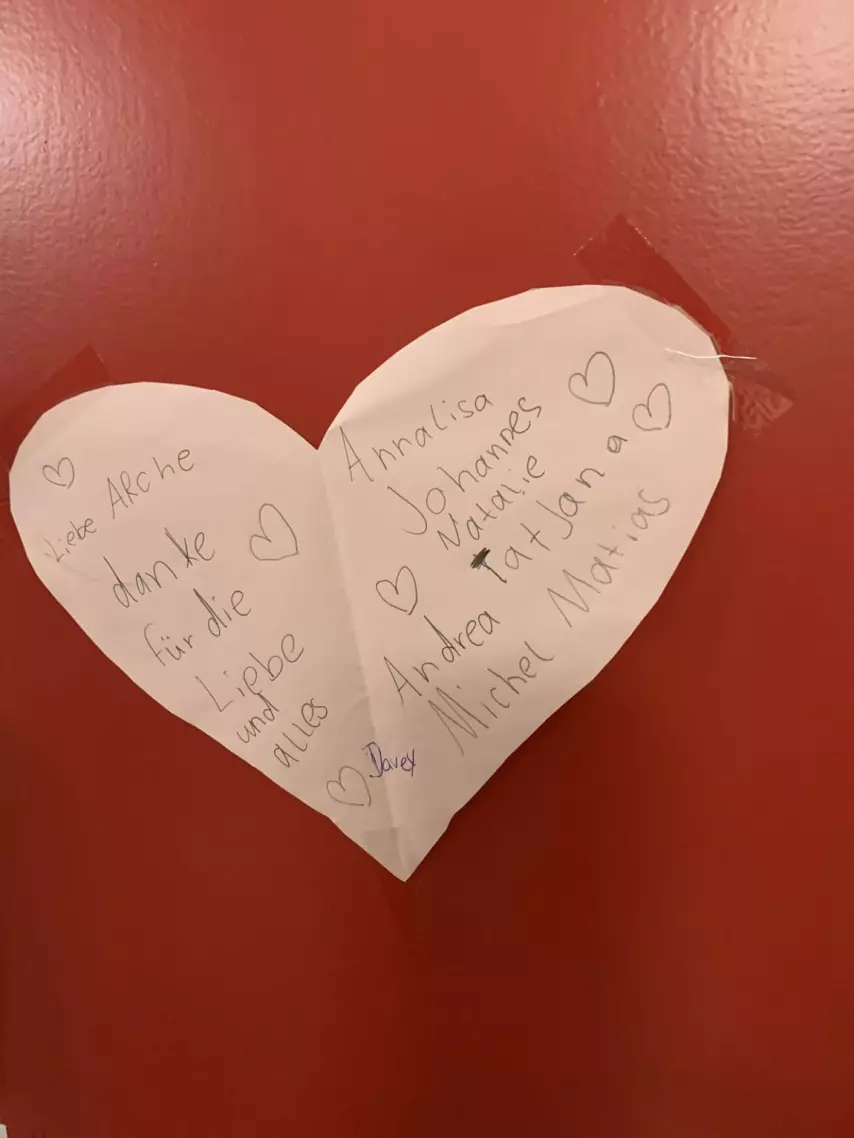 Liebe ARche
danke
für die
Liebe
und
alles
Annalisa
Johannes
Natalie
Tatjana
Andrea
Michel Matias
Davex